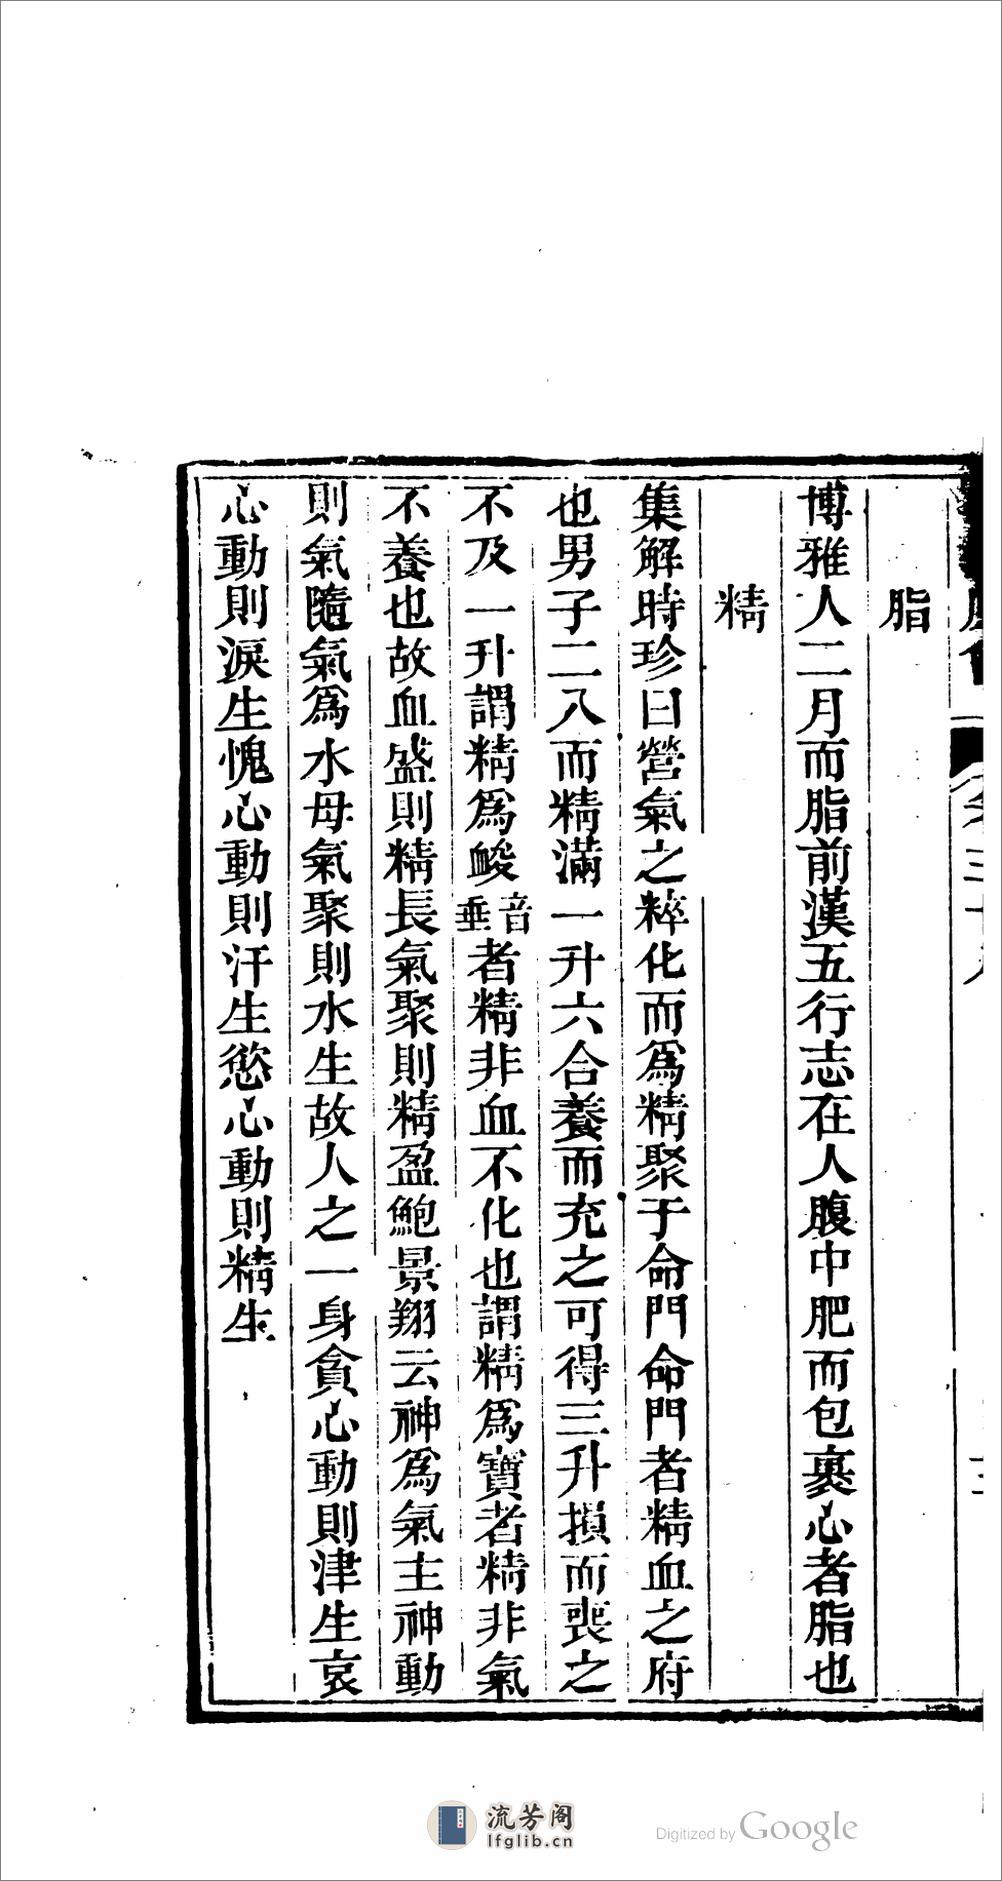 脂
博雅人二月而脂前漢五行志在人腹中肥而包裹心者脂也
精
集解時珍曰營氣之粹化而爲精聚于命門命門者精血之府
也男子二八而精滿一升六合養而充之可得三升損而喪之
不及一升謂精爲峻音垂者精非血不化也謂精爲寶者精非氣
不養也故血盛則精長氣聚則精盈鮑景翔云神爲氣主神動
則氣隨氣爲水母氣聚則水生故人之一身貪心動則津生哀
心動則淚生愧心動則汗生慾心動則精生
流芳阁
lfglib.cn
Digitized by Google